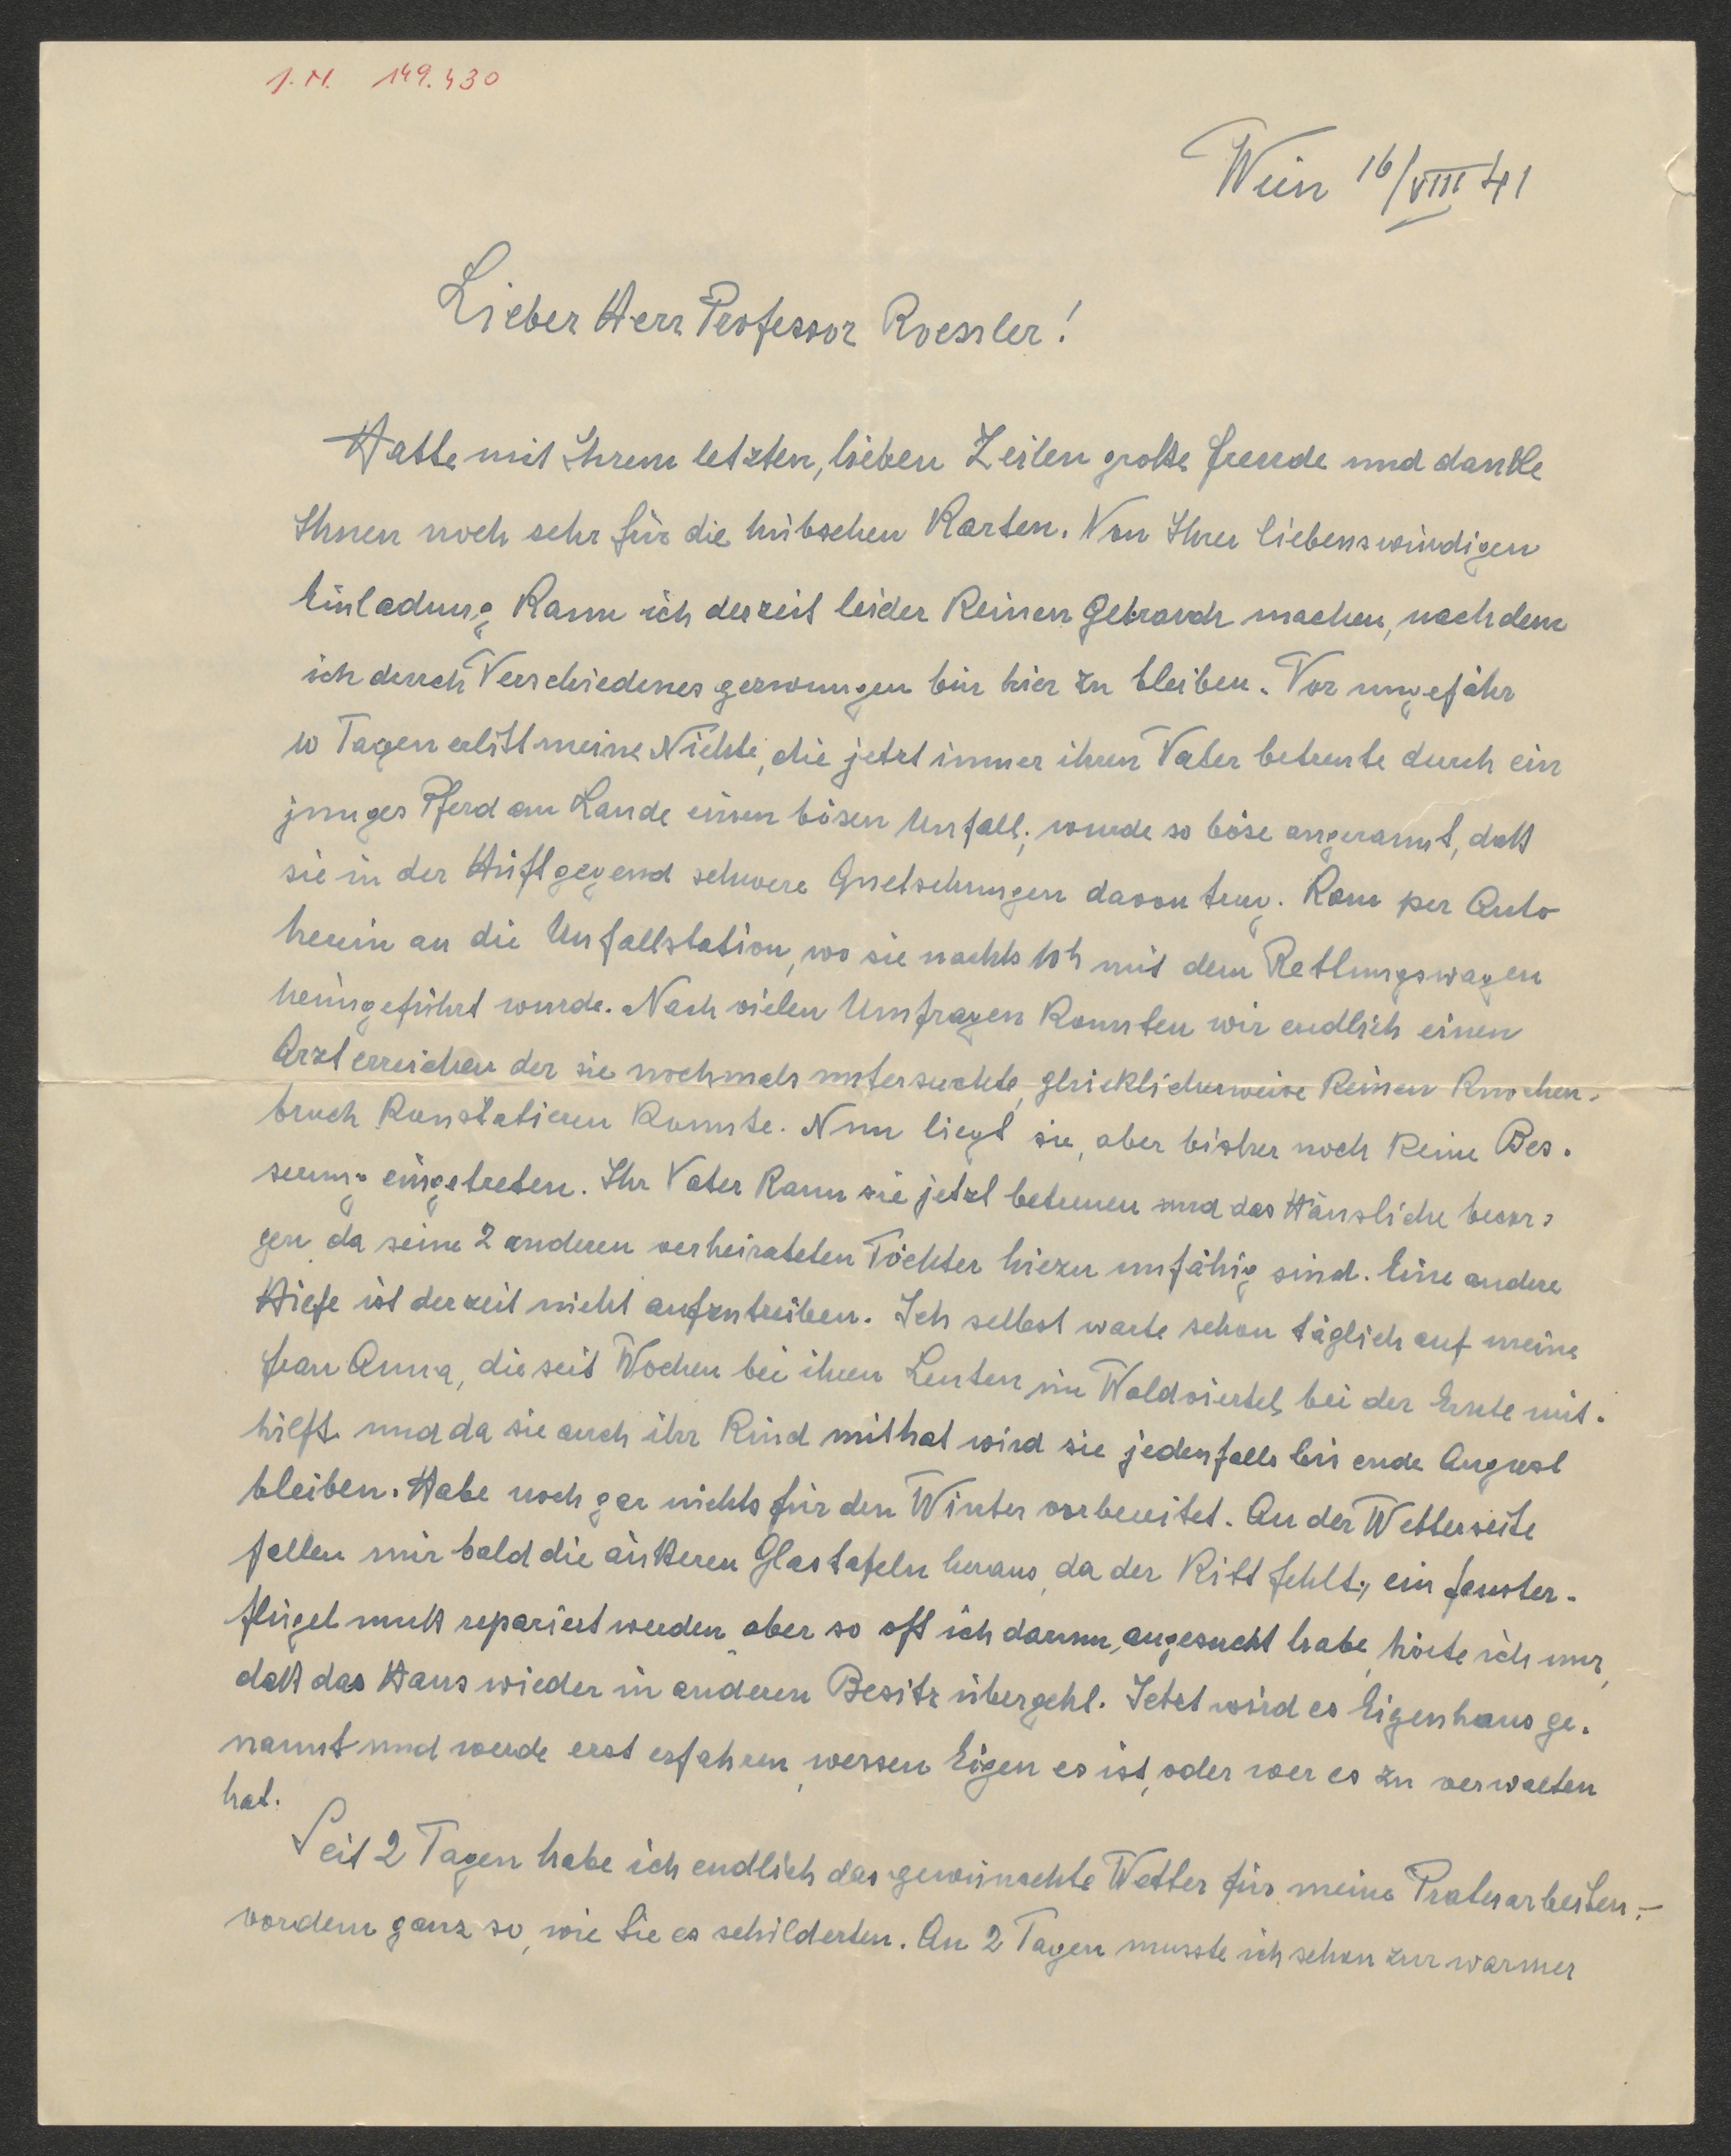 J.N. 149.430
Wien 16/VIII 41
Lieber Herr Professor Roessler!
Hatte mit Ihrem letzten, lieben Zeilen große Freude und danke
Ihnen noch sehr für die hübschen Karten. Von Ihrer liebenswürdigen
Einladung kann ich derzeit leider keinen Gebrauch machen, nachdem
ich durch Verschiedenes gezwungen bin hier zu bleiben. Vor ungefähr
10 Tagen erlitt meine Nichte, die jetzt immer ihren Vater betreute durch ein
junges Pferd am Lande einen bösen Unfall; wurde so böse angerannt, daß
sie in der Hüftgegend schwere Quetschungen davon trug. Kam per Auto
herein an die Unfallstation, wo sie nachts 10h mit dem Rettungswagen
heimgeführt wurde. Nach vielen Umfragen konnten wir endlich einen
Arzt erreichen der sie nochmals untersuchte, glücklicherweise keinen Knochen-
bruch konstatieren konnte. Nun liegt sie, aber bisher noch keine Bes-
serung eingetreten. Ihr Vater kann sie jetzt betreuen und das Häusliche besor-
gen da seine 2 anderen verheirateten Töchter hiezu unfähig sind. Eine andere
Hilfe ist derzeit nicht aufzutreiben. Ich selbst warte schon täglich auf meine
Frau Anna, die seit Wochen bei ihren Leuten im Waldviertel, bei der Ernte mit-
hilft und da sie auch ihr Kind mithat wird sie jedenfalls bis ende August
bleiben. Habe noch gar nichts für den Winter vorbereitet. An der Wetterseite
fallen mir bald die äußeren Glastafeln heraus, da der Kitt fehlt, ein Fenster-
flügel muß repariert werden aber so oft ich darum, angesucht habe, hörte ich nur,
daß das Haus wieder in anderen Besitz übergeht. Jetzt wird es Eigenhaus ge-
nannt und werde erst erfahren, wessen Eigen es ist, oder wer es zu verwalten
hat.
Seit 2 Tagen habe ich endlich das gewünschte Wetter für meine Praterarbeiten,-
vordem ganz so, wie Sie es schilderten. An 2 Tagen musste ich schon zur warmer